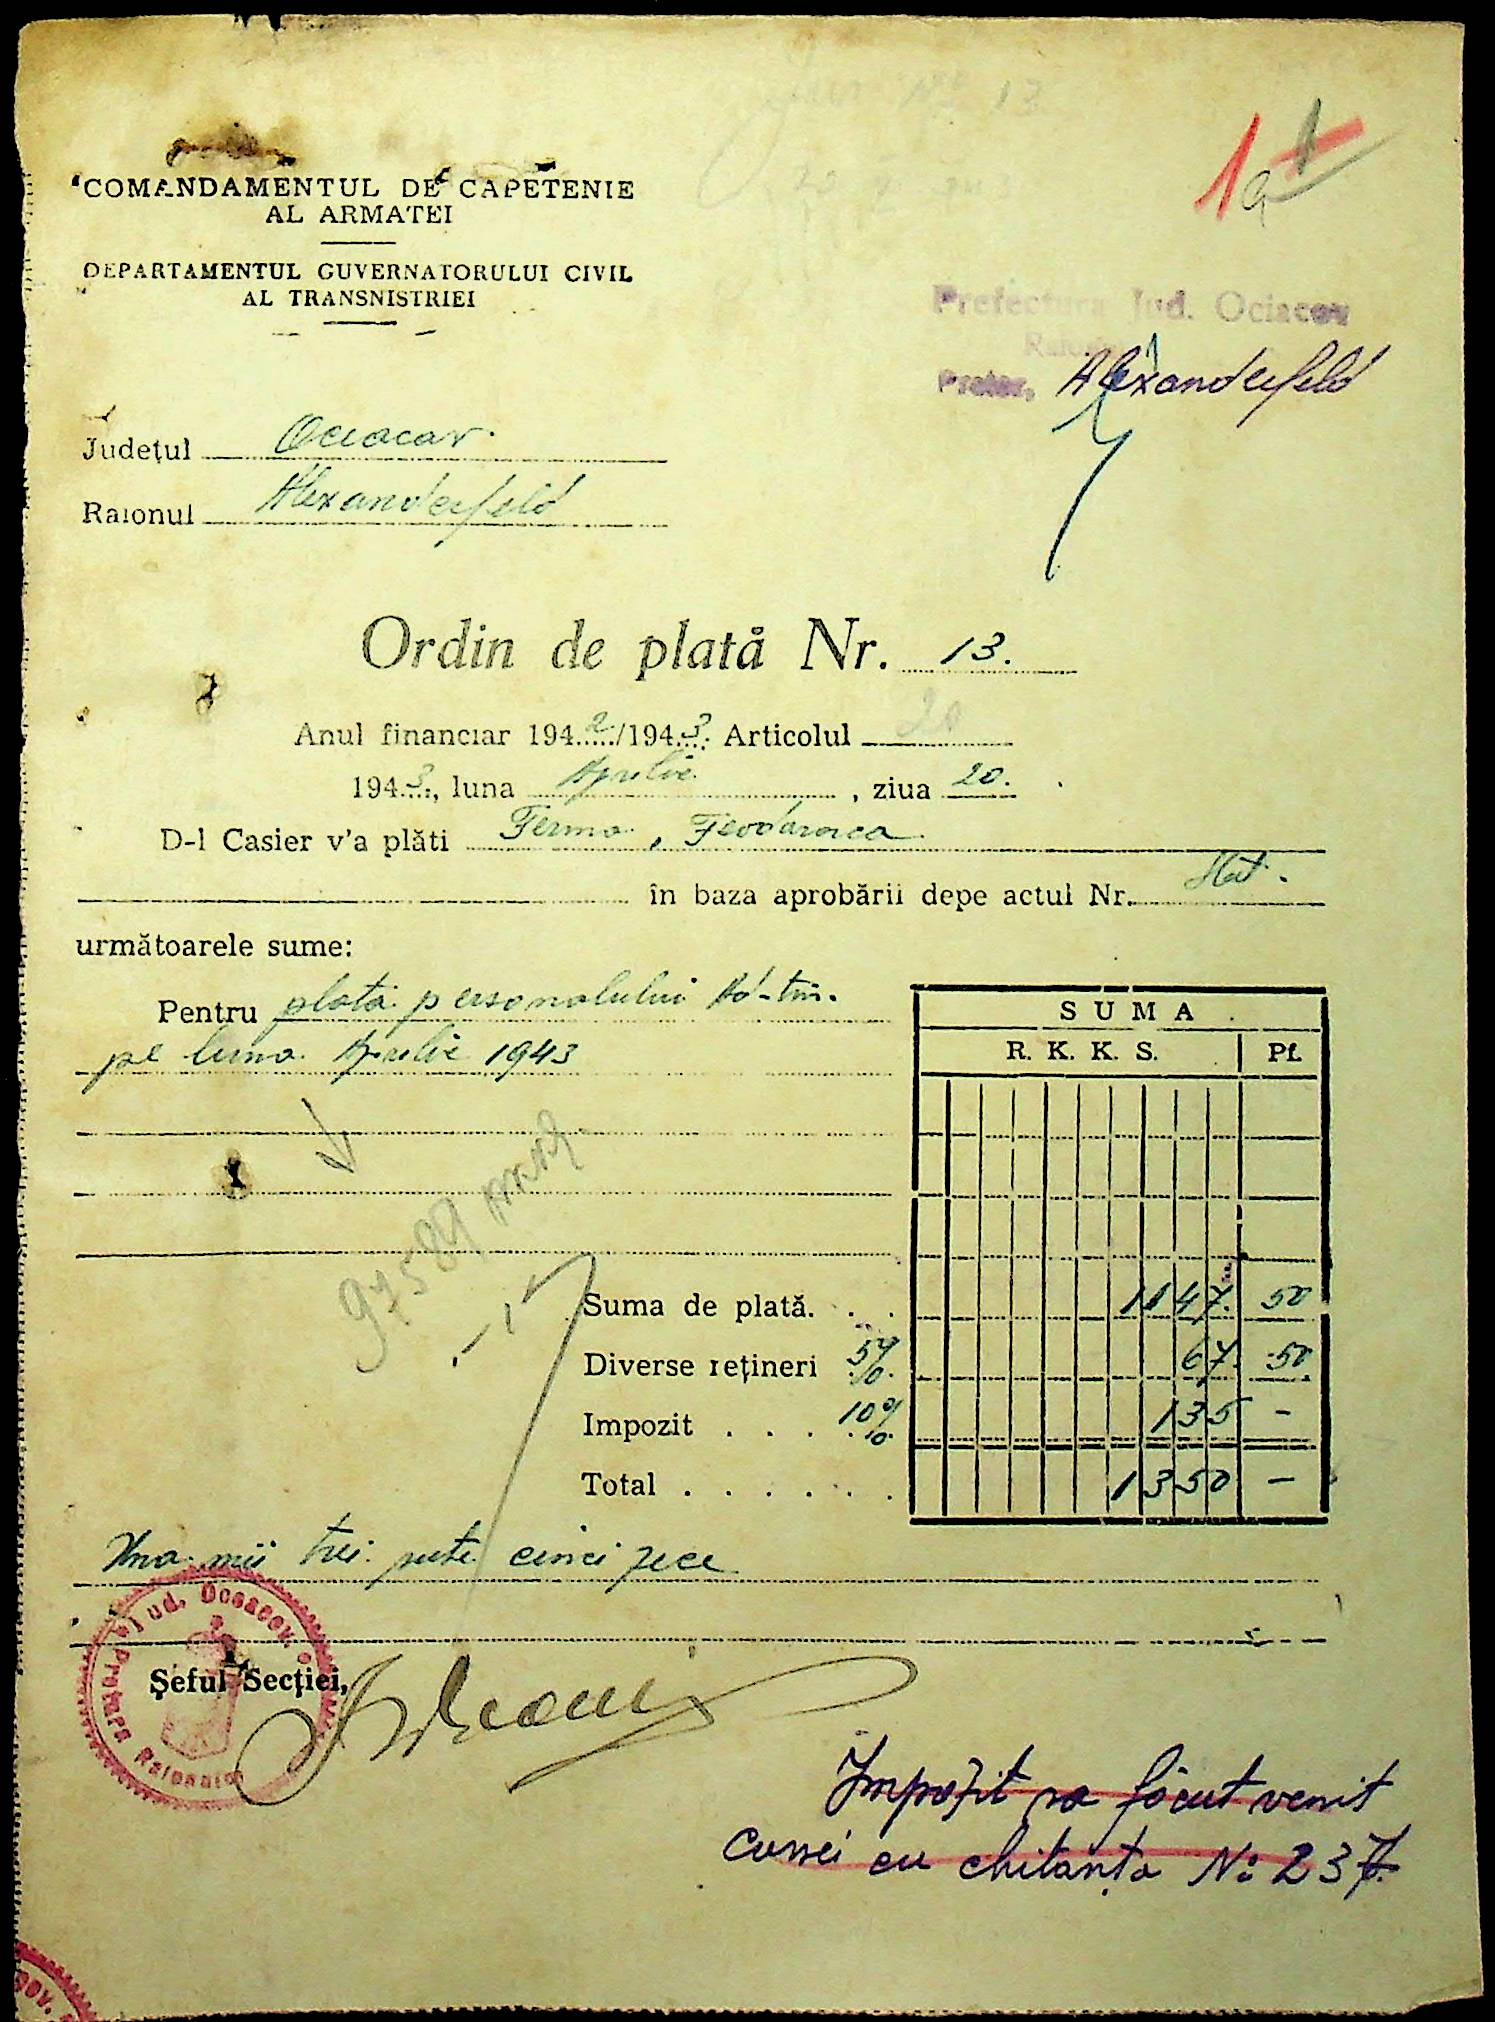 COMANDAMENTUL DE CAPETENIE
AL ARMATEI
DEPARTAMENTUL GUVERNATORULUI CIVIL
AL TRANSNISTRIEI
Prefectura Jud. Ociacov
Pretor, Alexanderfeld
Județul Ociacov.
Raionul Alexanderfeld
Ordin de plată Nr. 13.
Anul financiar 1942/1943. Articolul 20
1943, luna Aprilie, ziua 20.
D-l Casier v'a plăti Ferma, Feodorovca
în baza aprobării depe actul Nr. Stat.
următoarele sume:
Pentru plata personalului Ad-tiv.
pe luna Aprilie 1943
SUMA
R. K. K. S. Pf.
Suma de plată. . . 1147. 50
Diverse rețineri 5% 67. 50
Impozit . . . 10% 135 -
Total . . . . . . 1350 -
Una mii trei sute cinci zece
Jud. Oceacov.
Pretura Raionului
Șeful Secției,
Impozit sa făcut venit
cassei cu chitanța No 237.